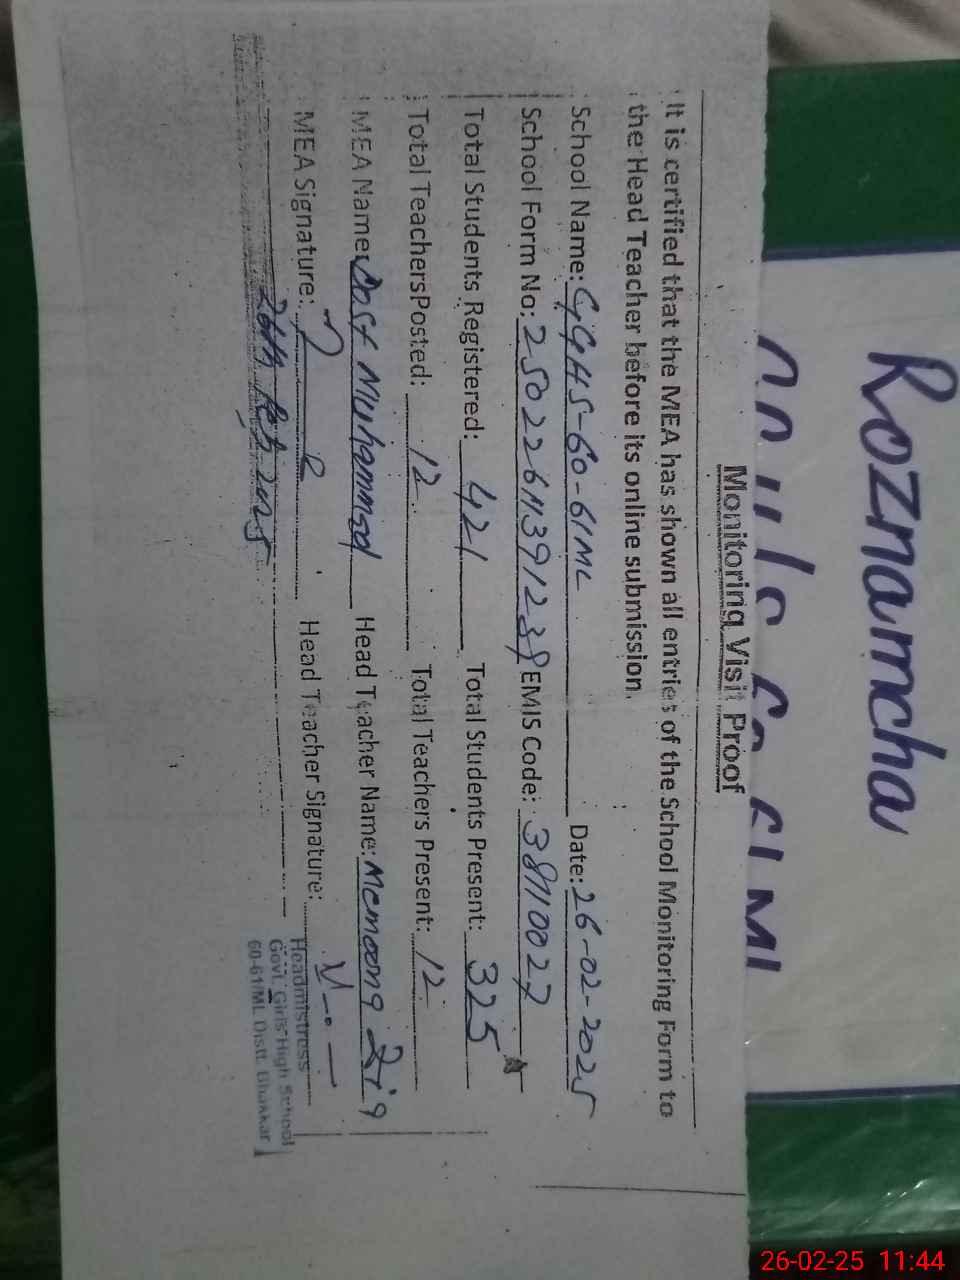 Roznamcha
Monitoring Visit Proof
It is certified that the MEA has shown all entries of the School Monitoring Form to
the Head Teacher before its online submission.
School Name: GGHS-60-61ML Date: 26-02-2025
School Form No: EMIS Code: 38110027
Total Students Registered: 421 Total Students Present: 325
Total TeachersPosted: 12 Total Teachers Present: 12
MEA Name: Dost Muhammad Head Teacher Name: Memoona
MEA Signature: Head Teacher Signature:
26th Feb, 2025
Headmistress
Govt. Girls High School
60-61/ML Distt. Bhakkar
26-02-25 11:44